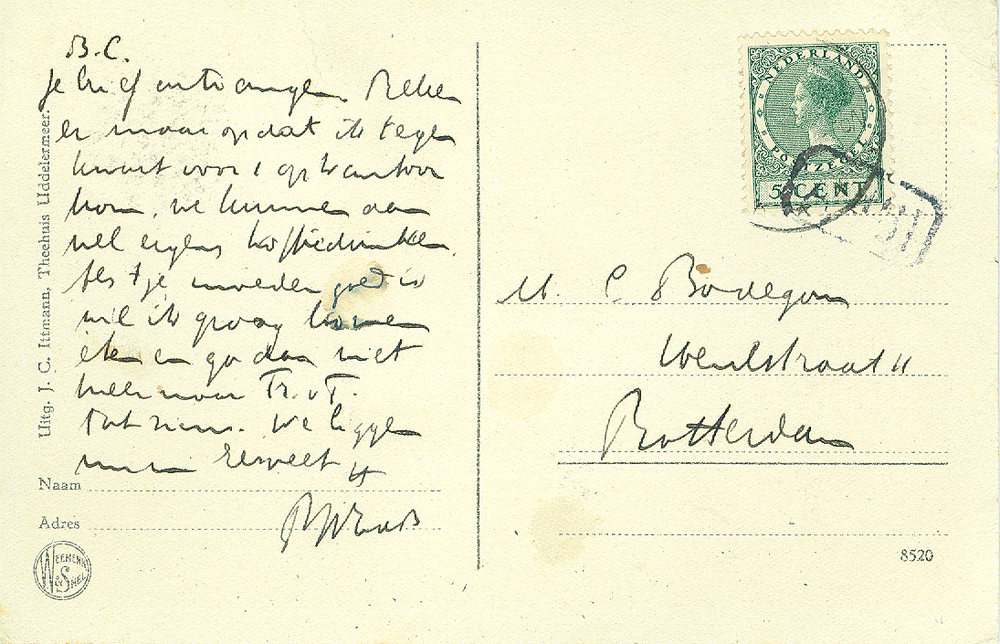 B.C.
Je brief ontvangen. Reken
er maar op dat ik tegen
kwart voor 1 op kantoor
kom, we kunnen dan
wel ergens koffiedrinken.
Als 't je moeder goed is
wil ik graag komen
eten en ga dan niet
meer naar Tr. v T.
Tot ziens. We liggen
Naam
Adres
Uitg. J. C. Ittmann, Theehuis Uddelermeer.
WEENENK & SNEL
NEDERLAND
POSTZEGEL
5 CENT
C Bodegom
straat 11
Rotterdam
8520